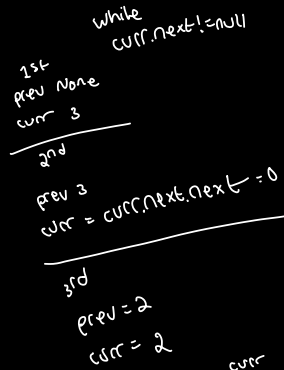 while
curr.next!=null
1st
prev None
curr 3
2nd
prev 3
curr = curr.next.next = 0
3rd
prev = 2
curr = 2
curr